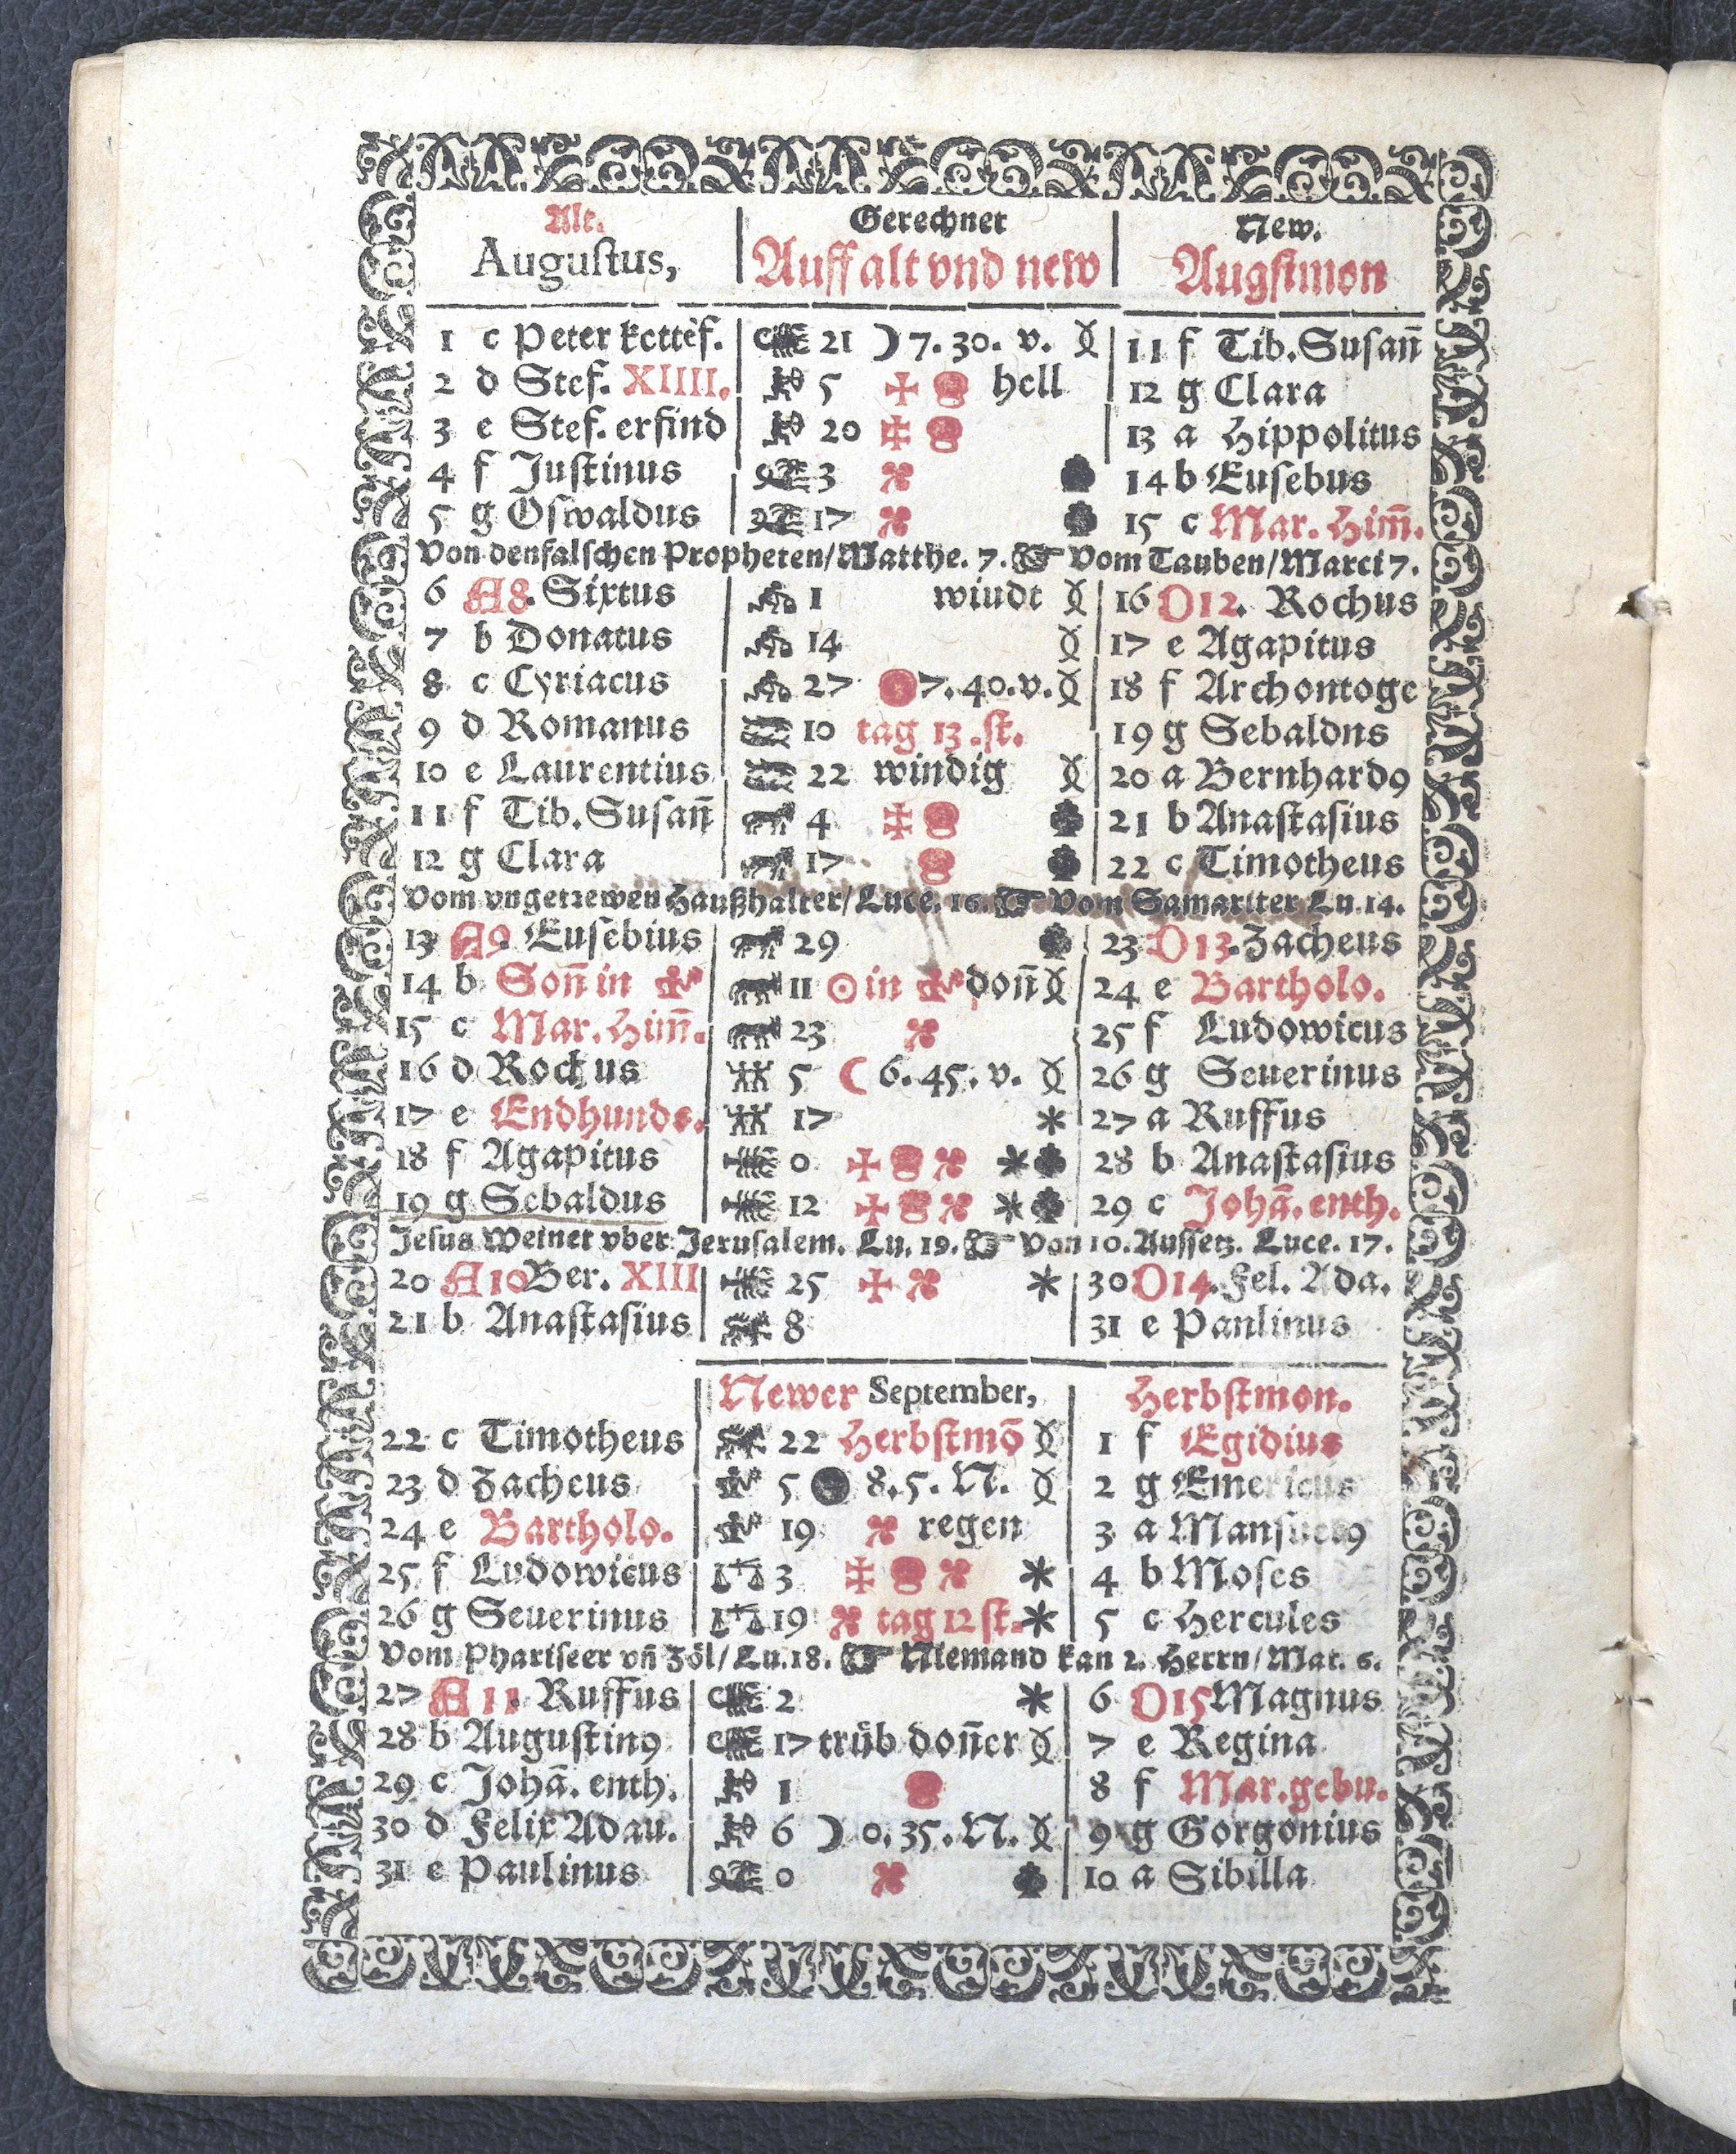 Alt. Gerechner New.
Augustus, Auff alt vnd new Augstmon
1 c Peter kettēf. 21 ☽ 7. 30. v. 11 f Tib. Susan̄
2 d Stef. XIIII. 5 hell 12 g Clara
3 e Stef. erfind 20 13 a Hippolitus
4 f Justinus 3 14 b Eusebus
5 g Oswaldus 17 15 c Mar. Him̄.
Von den falschen Propheten/Matthe. 7. ☞ Vom Tauben/Marci 7.
6 A 8. Sixtus 1 windt 16 D 12. Rochus
7 b Donatus 14 17 e Agapitus
8 c Cyriacus 27 7. 40. v. 18 f Archontoge
9 d Romanus 10 tag 13. st. 19 g Sebaldns
10 e Laurentius 22 windig 20 a Bernhard9
11 f Tib. Susan̄ 4 21 b Anastasius
12 g Clara 17 22 c Timotheus
Vom vngetrewen Haußhalter/Luce. 16. ☞ Vom Samariter Lu. 14.
13 A 9. Eusebius 29 23 D 13. Zacheus
14 b Son̄ in ♍ 11 ☉ in ♍ don̄ 24 e Bartholo.
15 c Mar. Him̄. 23 25 f Ludowicus
16 d Rochus 5 ☾ 6. 45. v. 26 g Seuerinus
17 e Endhunds. 17 * 27 a Ruffus
18 f Agapitus 0 * 28 b Anastasius
19 g Sebaldus 12 * 29 c Johā. enth.
Jesus Weinet vber Jerusalem. Lu. 19. ☞ Von 10. Aussetz. Luce. 17.
20 A 10 Ber. XIII 25 * 30 D 14. Fel. Ada.
21 b Anastasius 8 31 e Panlinus
Newer September, Herbstmon.
22 c Timotheus 22 Herbstmō 1 f Egidius
23 d Zacheus 5 ● 8. 5. N. 2 g Emericus
24 e Bartholo. 19 regen 3 a Mansuet9
25 f Ludowicus 3 * 4 b Moses
26 g Seuerinus 19 tag 12 st. * 5 c Hercules
Vom Phariseer vn̄ Zöl/Lu. 18. ☞ Niemand kan 2. Herrn/Mat. 6.
27 A 11. Ruffus 2 * 6 D 15 Magnus
28 b Augustin9 17 trüb don̄er 7 e Regina
29 c Johā. enth. 1 8 f Mar. gebu.
30 d Felix Adau. 6 ☽ 0. 35. N. 9 g Gorgonius
31 e Paulinus 0 10 a Sibilla